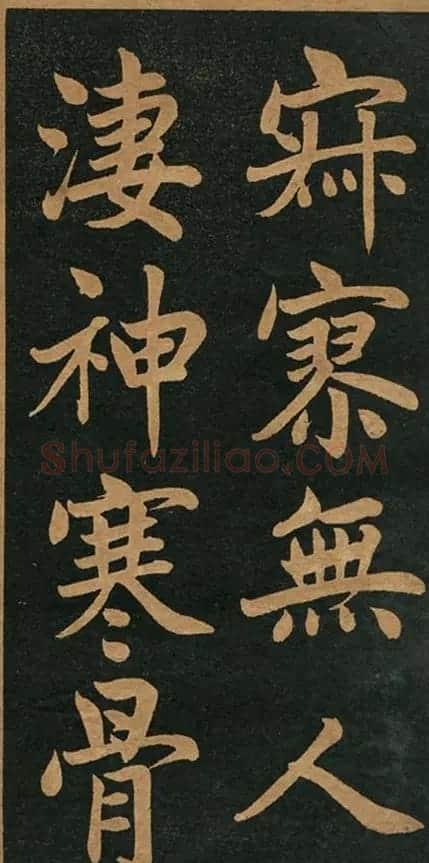 寂寥無人
淒神寒骨
Shufaziliao.COM